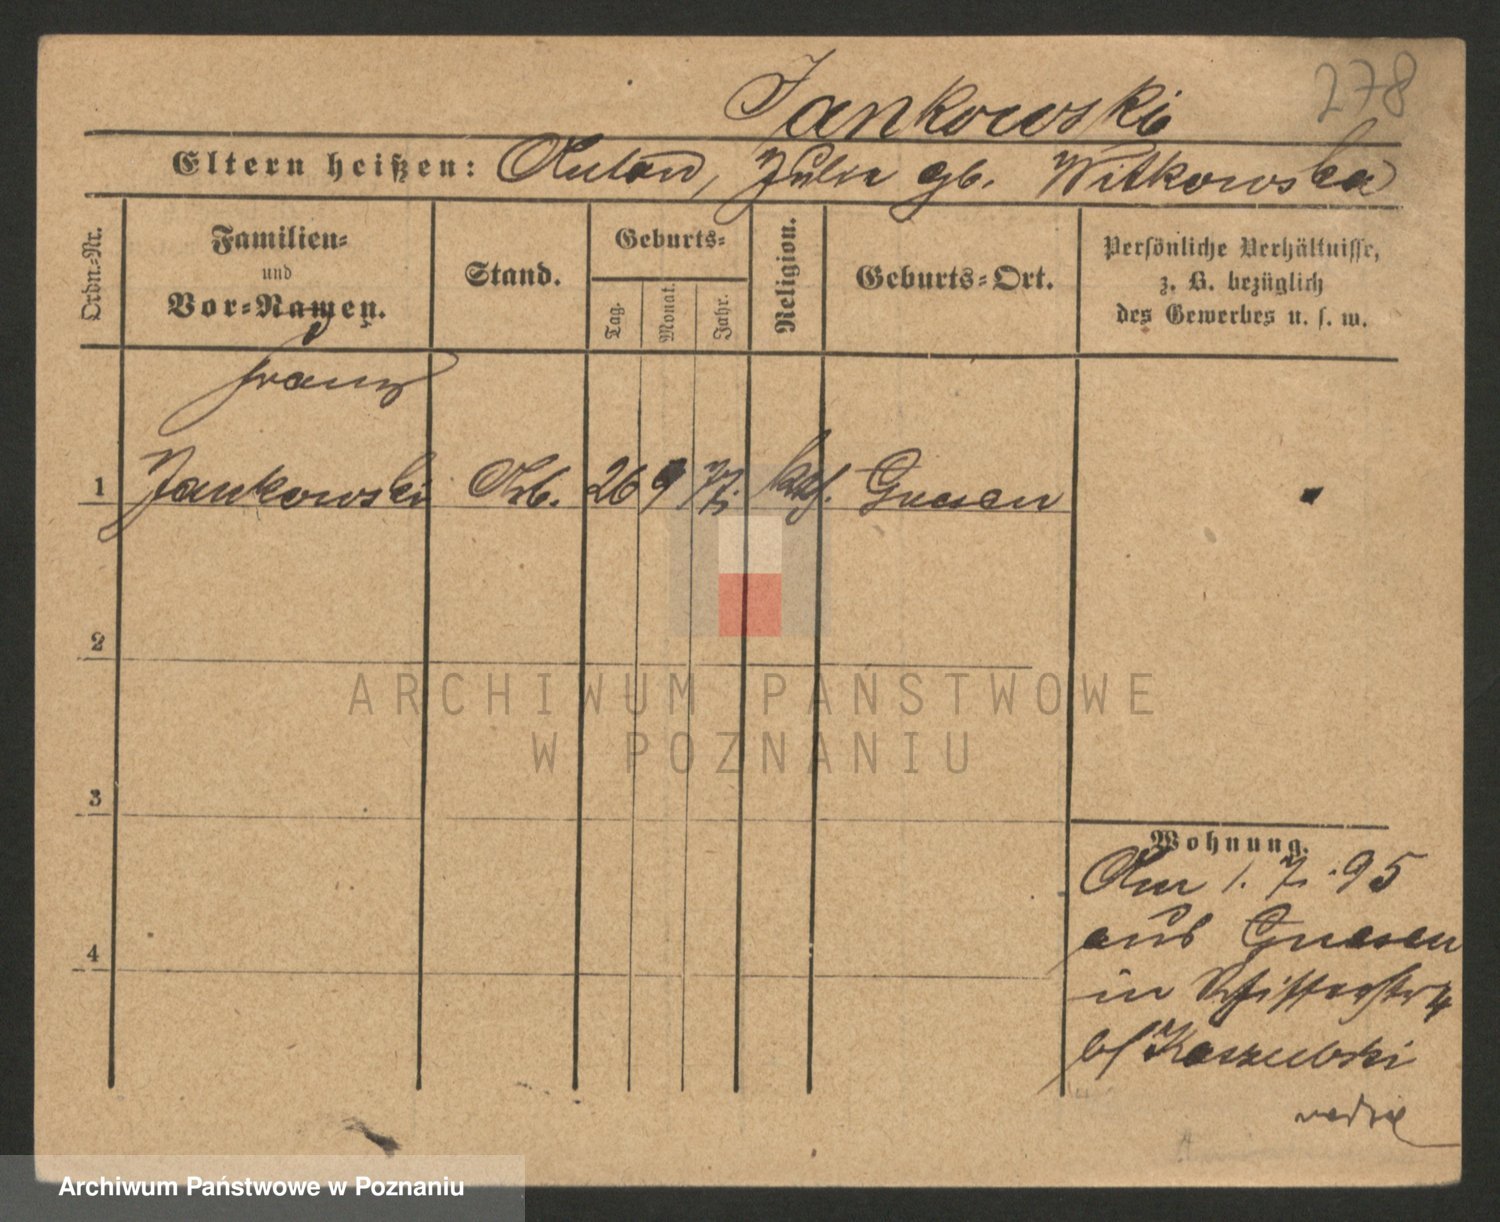 278
Jankowski
Eltern heißen: Anton, Julia gb. Witkowska
Ordn.-Nr.
Familien-
und
Vor-Namen.
Stand.
Geburts-
Tag.
Monat.
Jahr.
Religion.
Geburts-Ort.
Persönliche Verhältnisse,
z. B. bezüglich
des Gewerbes u. s. w.
Franz
1 Jankowski Arb. 26 9 77. kath. Gnesen
2
ARCHIWUM PAŃSTWOWE
W POZNANIU
3
4
Wohnung.
Am 1. 7. 95
aus Gnesen
in 4
b/ Kaszubski
Archiwum Państwowe w Poznaniu